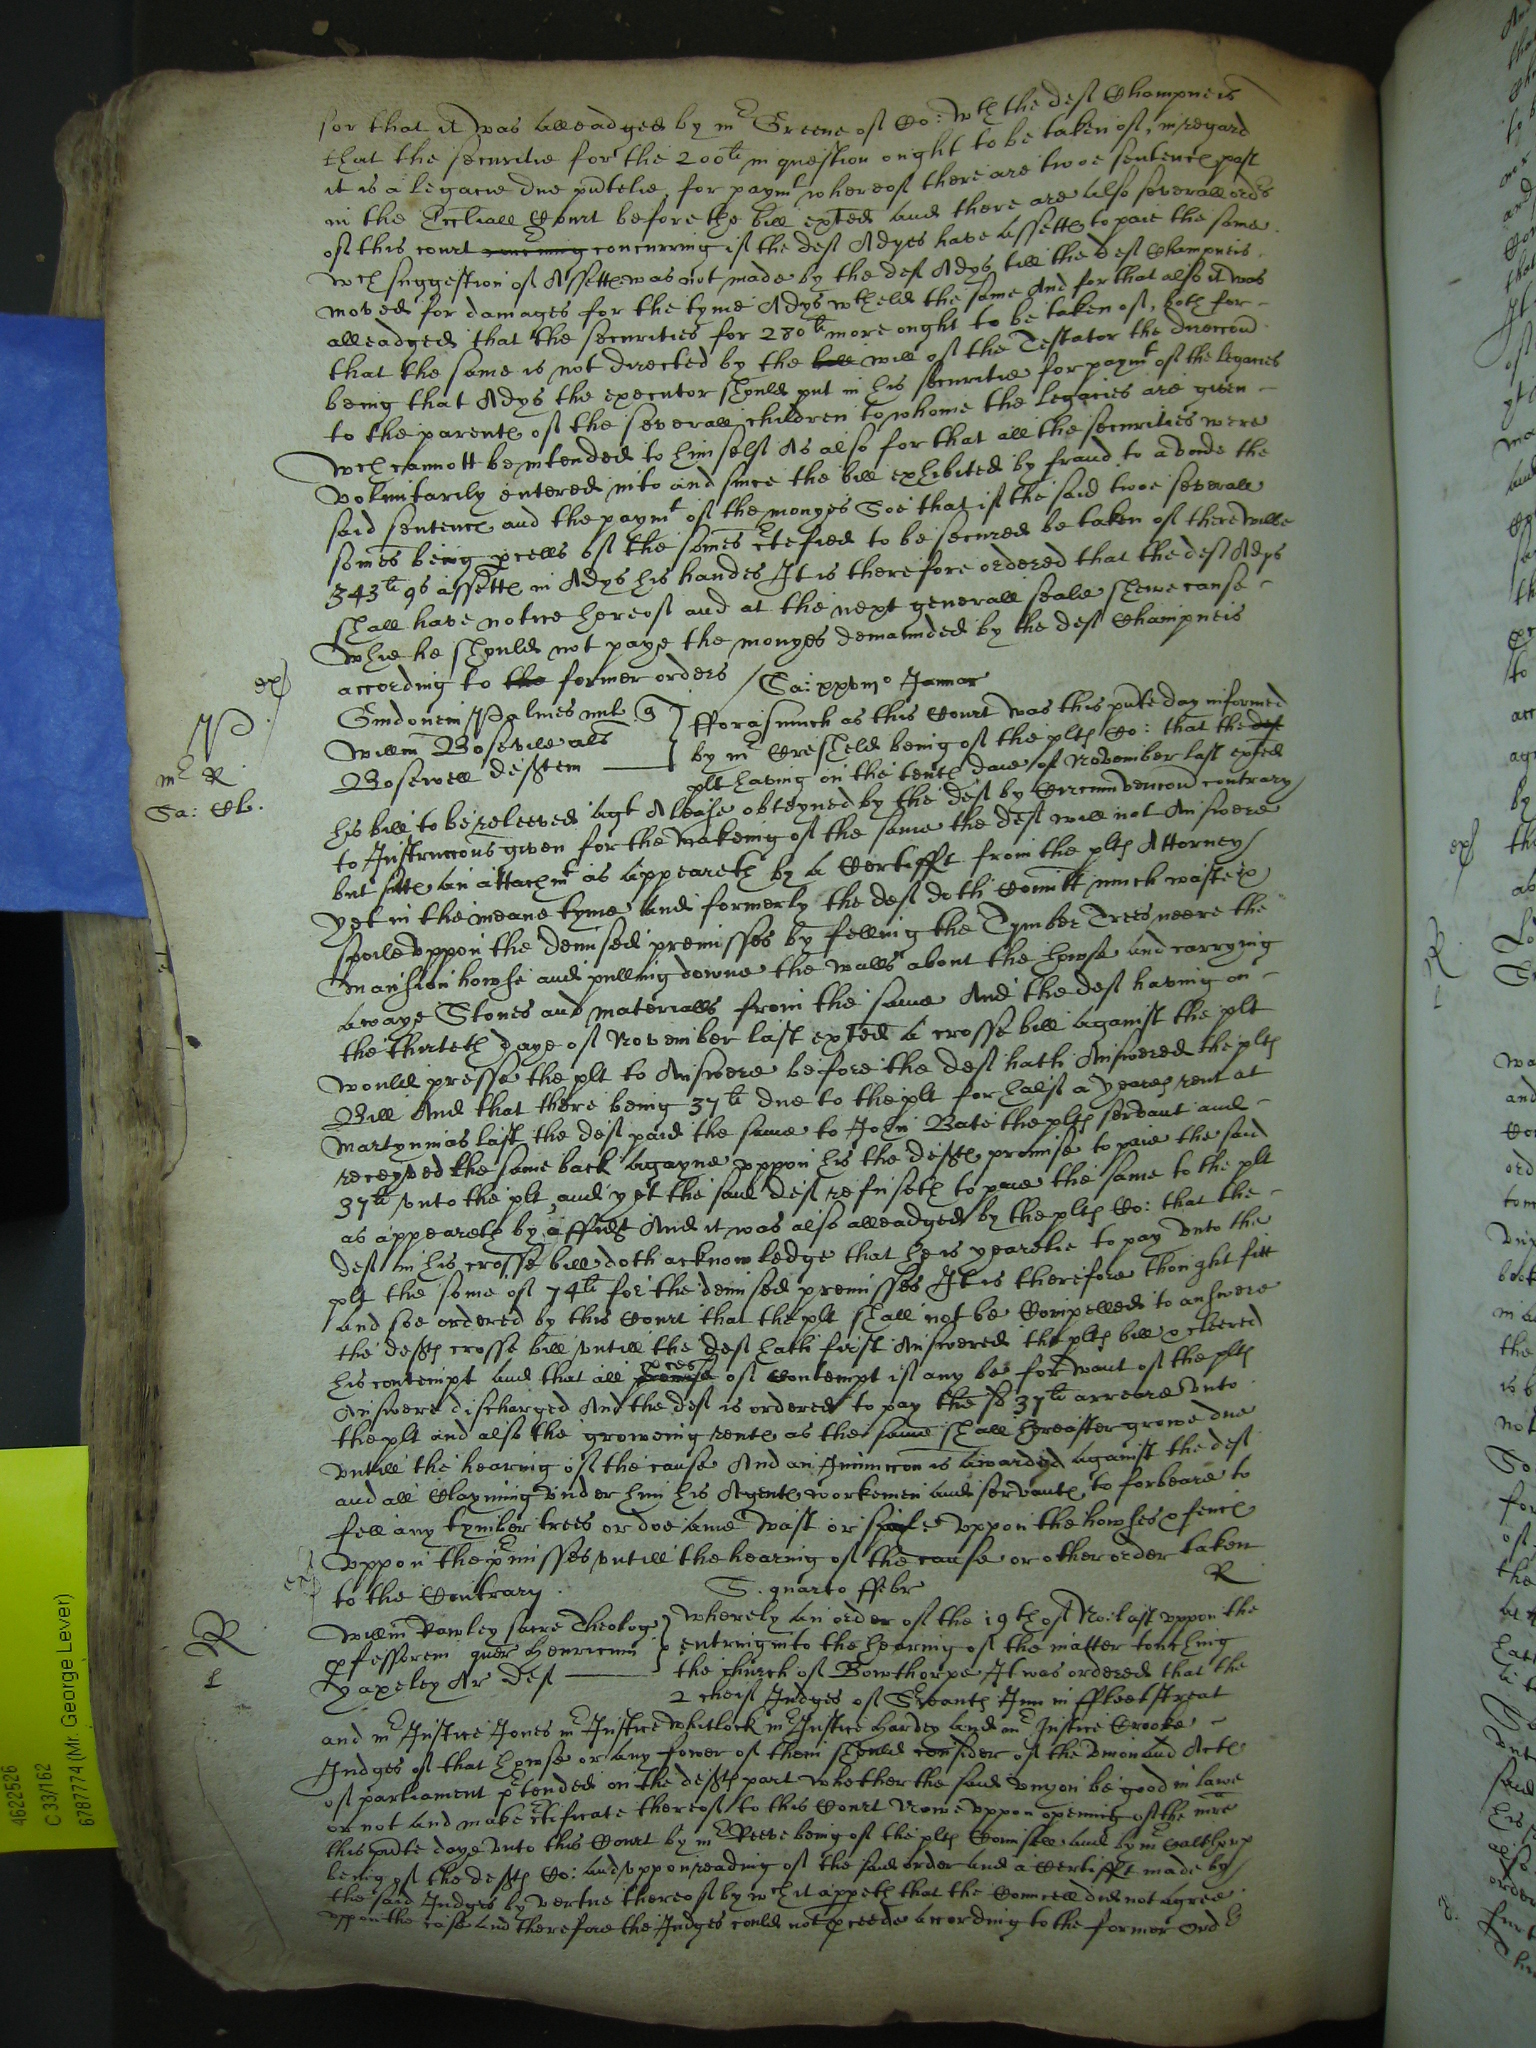 for that it was alleadged by mr Greene of Co: wth the deft Champneis
that the securitie for the 200li in question ought to be taken of, in regard
it is a legacie due pntelie, for paymt whereof there are twoe sentences past
in the Ecctiall Court before the bill exted and there are also severall ordrs
of this court concurring if the deft Adyes have Assetts to paie the same
wch suggestion of Assetts was not made by the deft Adys till the deft Champneis
moved for damages for the tyme Adys wtheld the same And for that also it was
alleadged that the securities for 280li more ought to be taken of, both for
that the same is not directed by the bill will of the Testator the
being that Adys the executor should put in his securitie for paymt of the legacies
to the parents of the severall children to whome the Legacies are given
wch cannott be intended to himself As also for that all the securities were
voluntarily entered into and since the bill exhibited by fraud to avoide the
said sentences and the paymt of the monyes Soe that if the said twoe severall
somes being pcells of the somes ctefied to be secured be taken of there wilbe
343li 9s assetts in Adys his handes It is therefore ordered that the deft Adys
shall have notice hereof and at the next generall seale shewe cause
whie he should not paye the monyes demaunded by the deft Champneis
according to the former orders / Sa: xxvio Januar
ex
W
mr R
Sa: Cl.
Guidonem Palmes mil q
Willm Bosevile als
Bosewell deftem
Fforasmuch as this Court was this pnte day informed
by mr Cresheld being of the plts Co: that the deft
plt having on the tenth daie of November last exted
his bill to be releeved agt A lease obteyned by the deft by Circumvencon contrary
to Instruccons given for the makeing of the same the deft will not Answere
but sitts an attachmt as appeareth by a Certifft from the plts Attorney
yet in the meane tyme and formerly the deft doth Comitt much waste &
spoile uppon the demised premisses by felling the Tymber Trees neere the
mansion howse and pulling downe the walls about the howse and carrying
awaye Stones and materialls from the same And the deft having on
the thirteth daye of November last exted a crosse bill against the plt
would presse the plt to Answere before the deft hath Answered the plts
Bill And that there being 37li due to the plt for halfe a yeares rent at
Martynmas last the deft paid the same to John Bate the plts servant and
receyved the same back agayne uppon his the defts promise to paie the said
37li unto the plt and yet the said deft refuseth to paie the same to the plt
as appeareth by affidt And it was also alleadged by the plts Co: that the
deft in his crosse bill doth acknowledge that he is yearelie to pay unto the
plt the some of 74li for the demised premisses It is therefore thought fitt
and soe ordered by this Court that the plt shall not be Compelled to answere
the defts crosse bill untill the deft hath first Answered the plts bill & cleered
his contempt and that all pces of Contempt if any be for want of the plts
Answere discharged And the deft is ordered to pay the sd 37li arreare unto
the plt and also the groweing rents as the same shall hereafter growe due
untill the hearing of the cause And an Iniunccon is awarded against the deft
and all Clayming under him his Agents workemen and servants to forbeare to
fell any tymber trees or doe anie wast or spoile uppon the howses & fences
uppon the pmisses untill the hearing of the cause or other order taken
to the Contrary
R
S. quarto Febr
ex
R
l
Willm Rawley sacre Theolog
pfessorem quer Henricum
Yaxeley Ar Deft
Whereby an order of the 19th of No: last uppon the
entring into the hearing of the matter touching
the church of Bowthorpe It was ordered that the
2 cheif Judges of Srieants Inn in ffleetstreat
and mr Justice Jones mr Justice Whitlock mr Justice Harvey and mr Justice Crooke
Judges of that howse or any fower of them should consider of the Union and Acts
of parliament ptended on the defts part whether the said Unyon be good in lawe
or not and make ctificate thereof to this Court Nowe uppon opening of the mre
this pnte daye unto this Court by mr Reeve being of the plts Counsell and by mr Calthorp
being of the defts Co: and uppon reading of the said order and a Certifft made by
the said Judges by vertue thereof by wch it appeth that the Councell did not agree
uppon the case and therefore the Judges could not pceede according to the former Ordr
4622526
C 33/162
6787774 (Mr. George Lever)